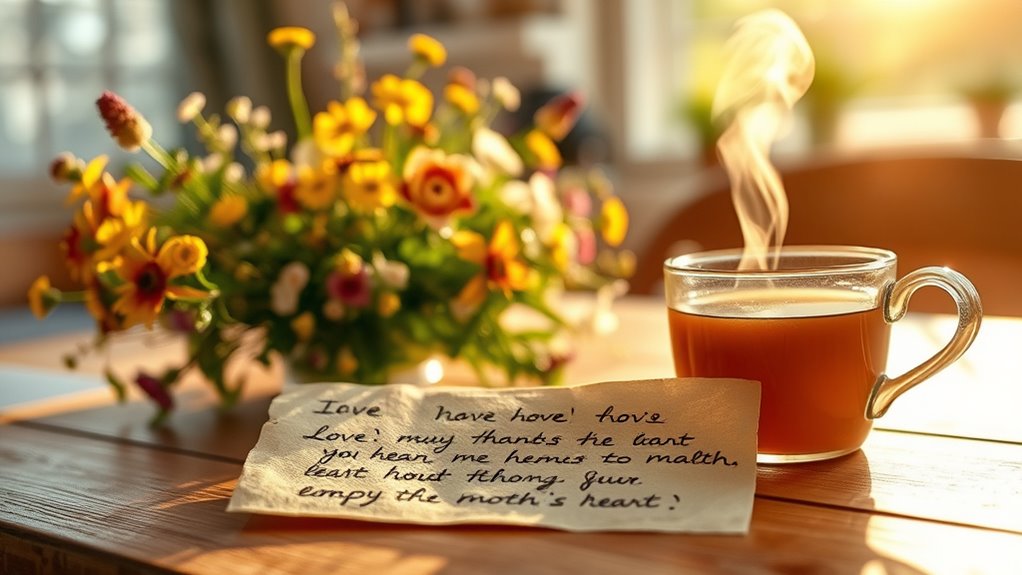 Iave have hove! hovs
Love! muy thants the bant
yoi hean me hemes to malth.
least hout tthong guur
empy the moth's heart!